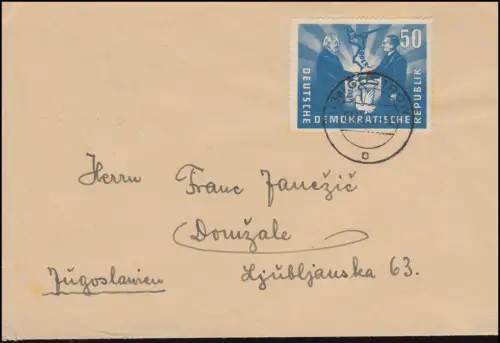 50
DEUTSCHE DEMOKRATISCHE REPUBLIK
Herrn Franc Janežič
Domžale
Ljubljanska 63.
Jugoslawien